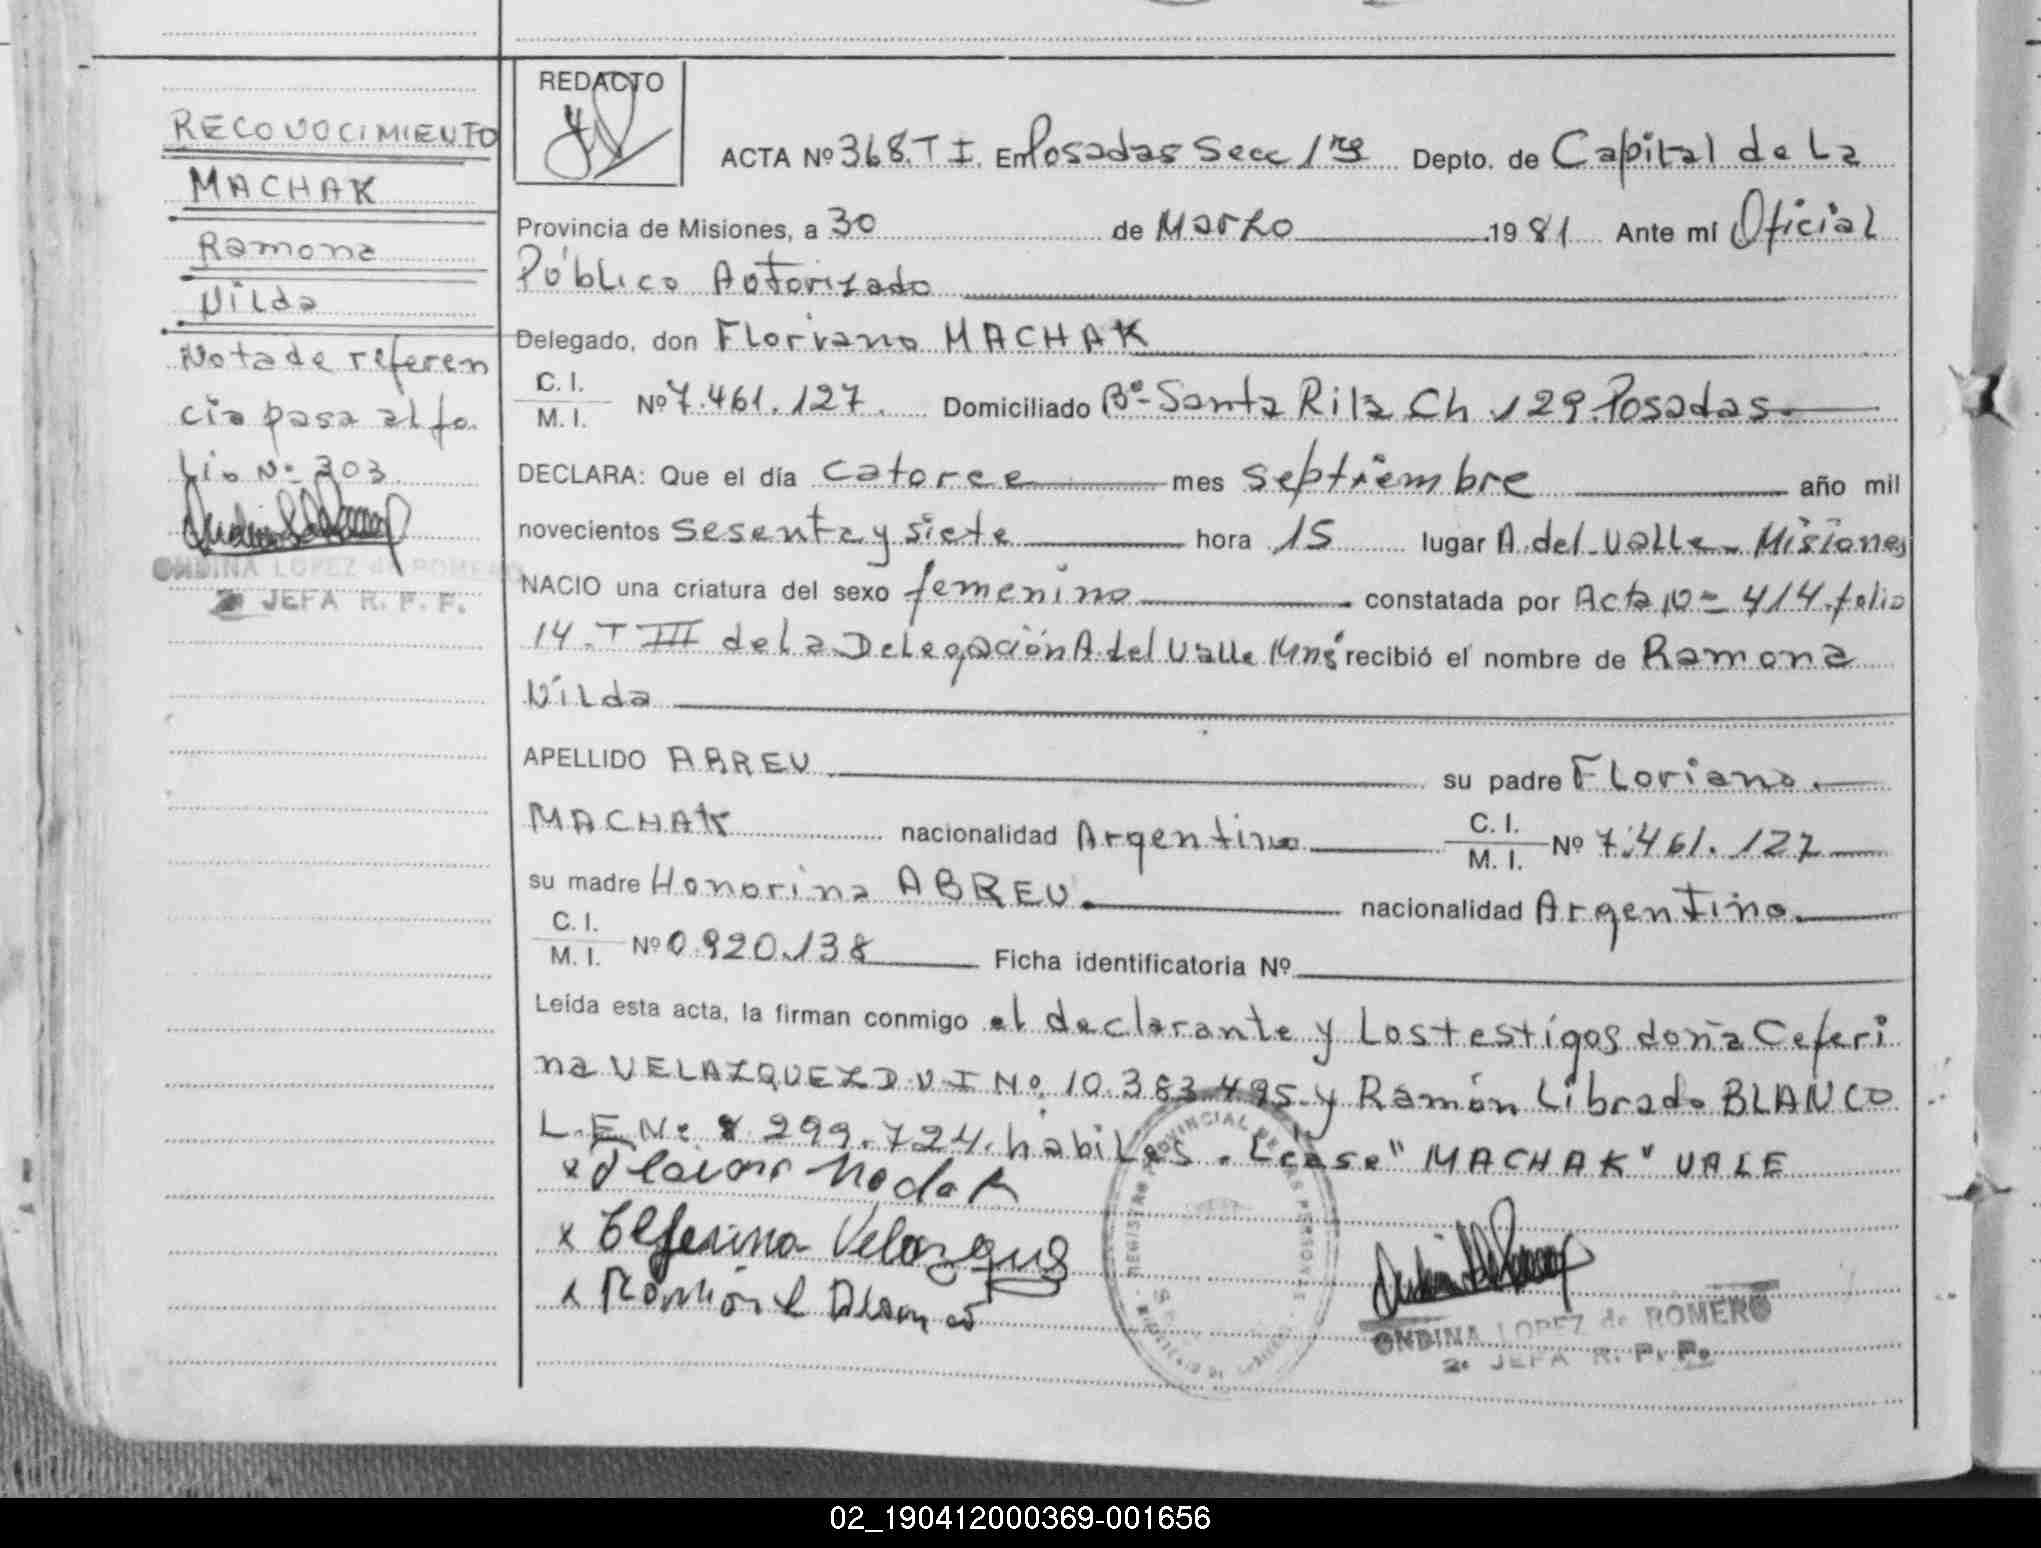 RECONOCIMIENTO
MACHAK
Ramona
Nilda
Nota de referen
cia pasa al fo.
lio Nº 303.
ONDINA LOPEZ de ROMERO
2º JEFA R. P. P.
REDACTO
ACTA Nº 368. T I. En Posadas Secc 1ra Depto. de Capital de La
Provincia de Misiones, a 30 de Marzo 1981 Ante mí Oficial
Público Autorizado
Delegado, don Floriano MACHAK
C. I.
M. I. Nº 7.461.127. Domiciliado Bº Santa Rita Ch 129 Posadas
DECLARA: Que el día catorce mes septiembre año mil
novecientos sesenta y siete hora 15 lugar A. del Valle - Misiones
NACIO una criatura del sexo femenino constatada por Acta Nº 414. folio
14. T III de la Delegación A del Valle Mns recibió el nombre de Ramona
Nilda
APELLIDO ABREU su padre Floriano.
MACHAK nacionalidad Argentino C. I.
M. I. Nº 7.461.127
su madre Honorina ABREU. nacionalidad Argentina.
C. I.
M. I. Nº 0.920.138 Ficha identificatoria Nº
Leída esta acta, la firman conmigo el declarante y los testigos doña Ceferi
na VELAZQUEZ D N I Nº 10.383.495 y Ramón Librado BLANCO
L. E Nº 8 299.724. hábiles. Léase "MACHAK" VALE
x
x Ceferina Velazques
x Ramón L Blanco
REGISTRO PROVINCIAL DE LAS PERSONAS
ONDINA LOPEZ de ROMERO
2º JEFA R. P. P.
02_190412000369-001656